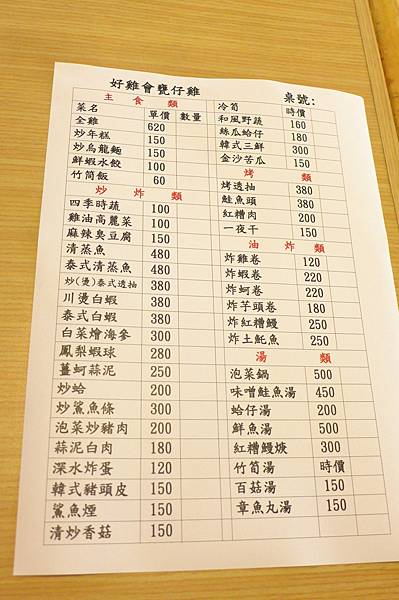 好雞會甕仔雞 桌號:
主食類
菜名 單價 數量
全雞 620
炒年糕 150
炒烏龍麵 150
鮮蝦水餃 100
竹筒飯 60
炒炸類
四季時蔬 100
雞油高麗菜 100
麻辣臭豆腐 150
清蒸魚 480
泰式清蒸魚 480
炒(燙)泰式透抽 380
川燙白蝦 380
泰式白蝦 380
白菜燴海參 300
鳳梨蝦球 280
薑蚵蒜泥 250
炒蛤 200
炒鯊魚條 300
泡菜炒豬肉 200
蒜泥白肉 180
深水炸蛋 120
韓式豬頭皮 150
鯊魚煙 150
清炒香菇 150
冷筍 時價
和風野蔬 160
絲瓜蛤仔 180
韓式三鮮 300
金沙苦瓜 150
烤類
烤透抽 380
鮭魚頭 380
紅糟肉 200
一夜干 150
油炸類
炸雞卷 120
炸蝦卷 220
炸蚵卷 220
炸芋頭卷 180
炸紅糟鰻 250
炸土魠魚 250
湯類
泡菜鍋 500
味噌鮭魚湯 450
蛤仔湯 200
鮮魚湯 500
紅糟鰻羹 300
竹筍湯 時價
百菇湯 150
章魚丸湯 150